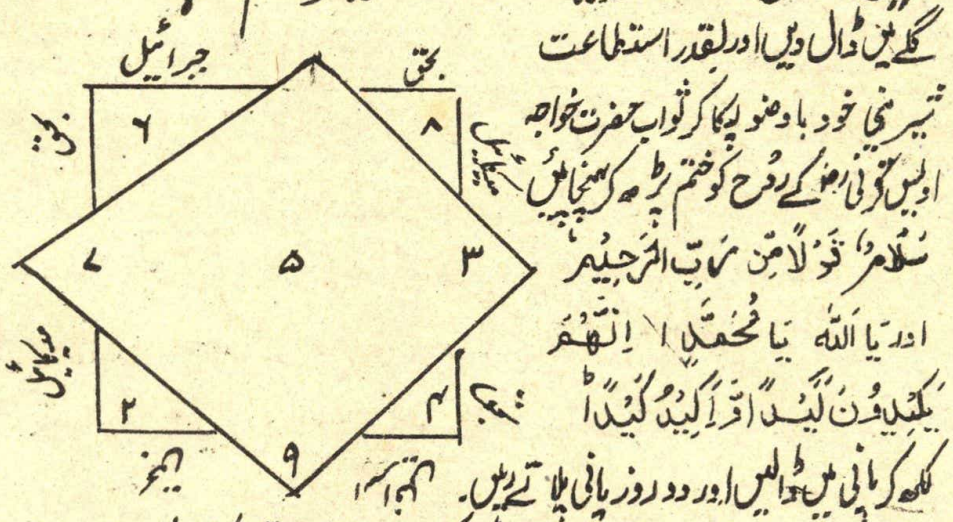 گلے میں ڈال دیں اور بقدر استطاعت
شیرینی خود باوضو پکا کر ثواب حضرت خواجہ
اویس قرنی رض کے روح کو ختم پڑھ کر پہنچائیں
سَلَامٌ قَوْلًا مِّن رَّبِّ الرَّحِيْمِ
اور یَا اَللّٰہ یَا مُحَمَّد اِنَّهُمْ
يَكِيْدُوْنَ كَيْدًا وَّاَكِيْدُ كَيْدًا
لکھ کر پانی میں ڈالیں اور دو روز پانی پلاتے رہیں۔
جبرائیل
بحق
بحق
۶
۸
میکائیل
۷
۵
۳
۲
۴
۹